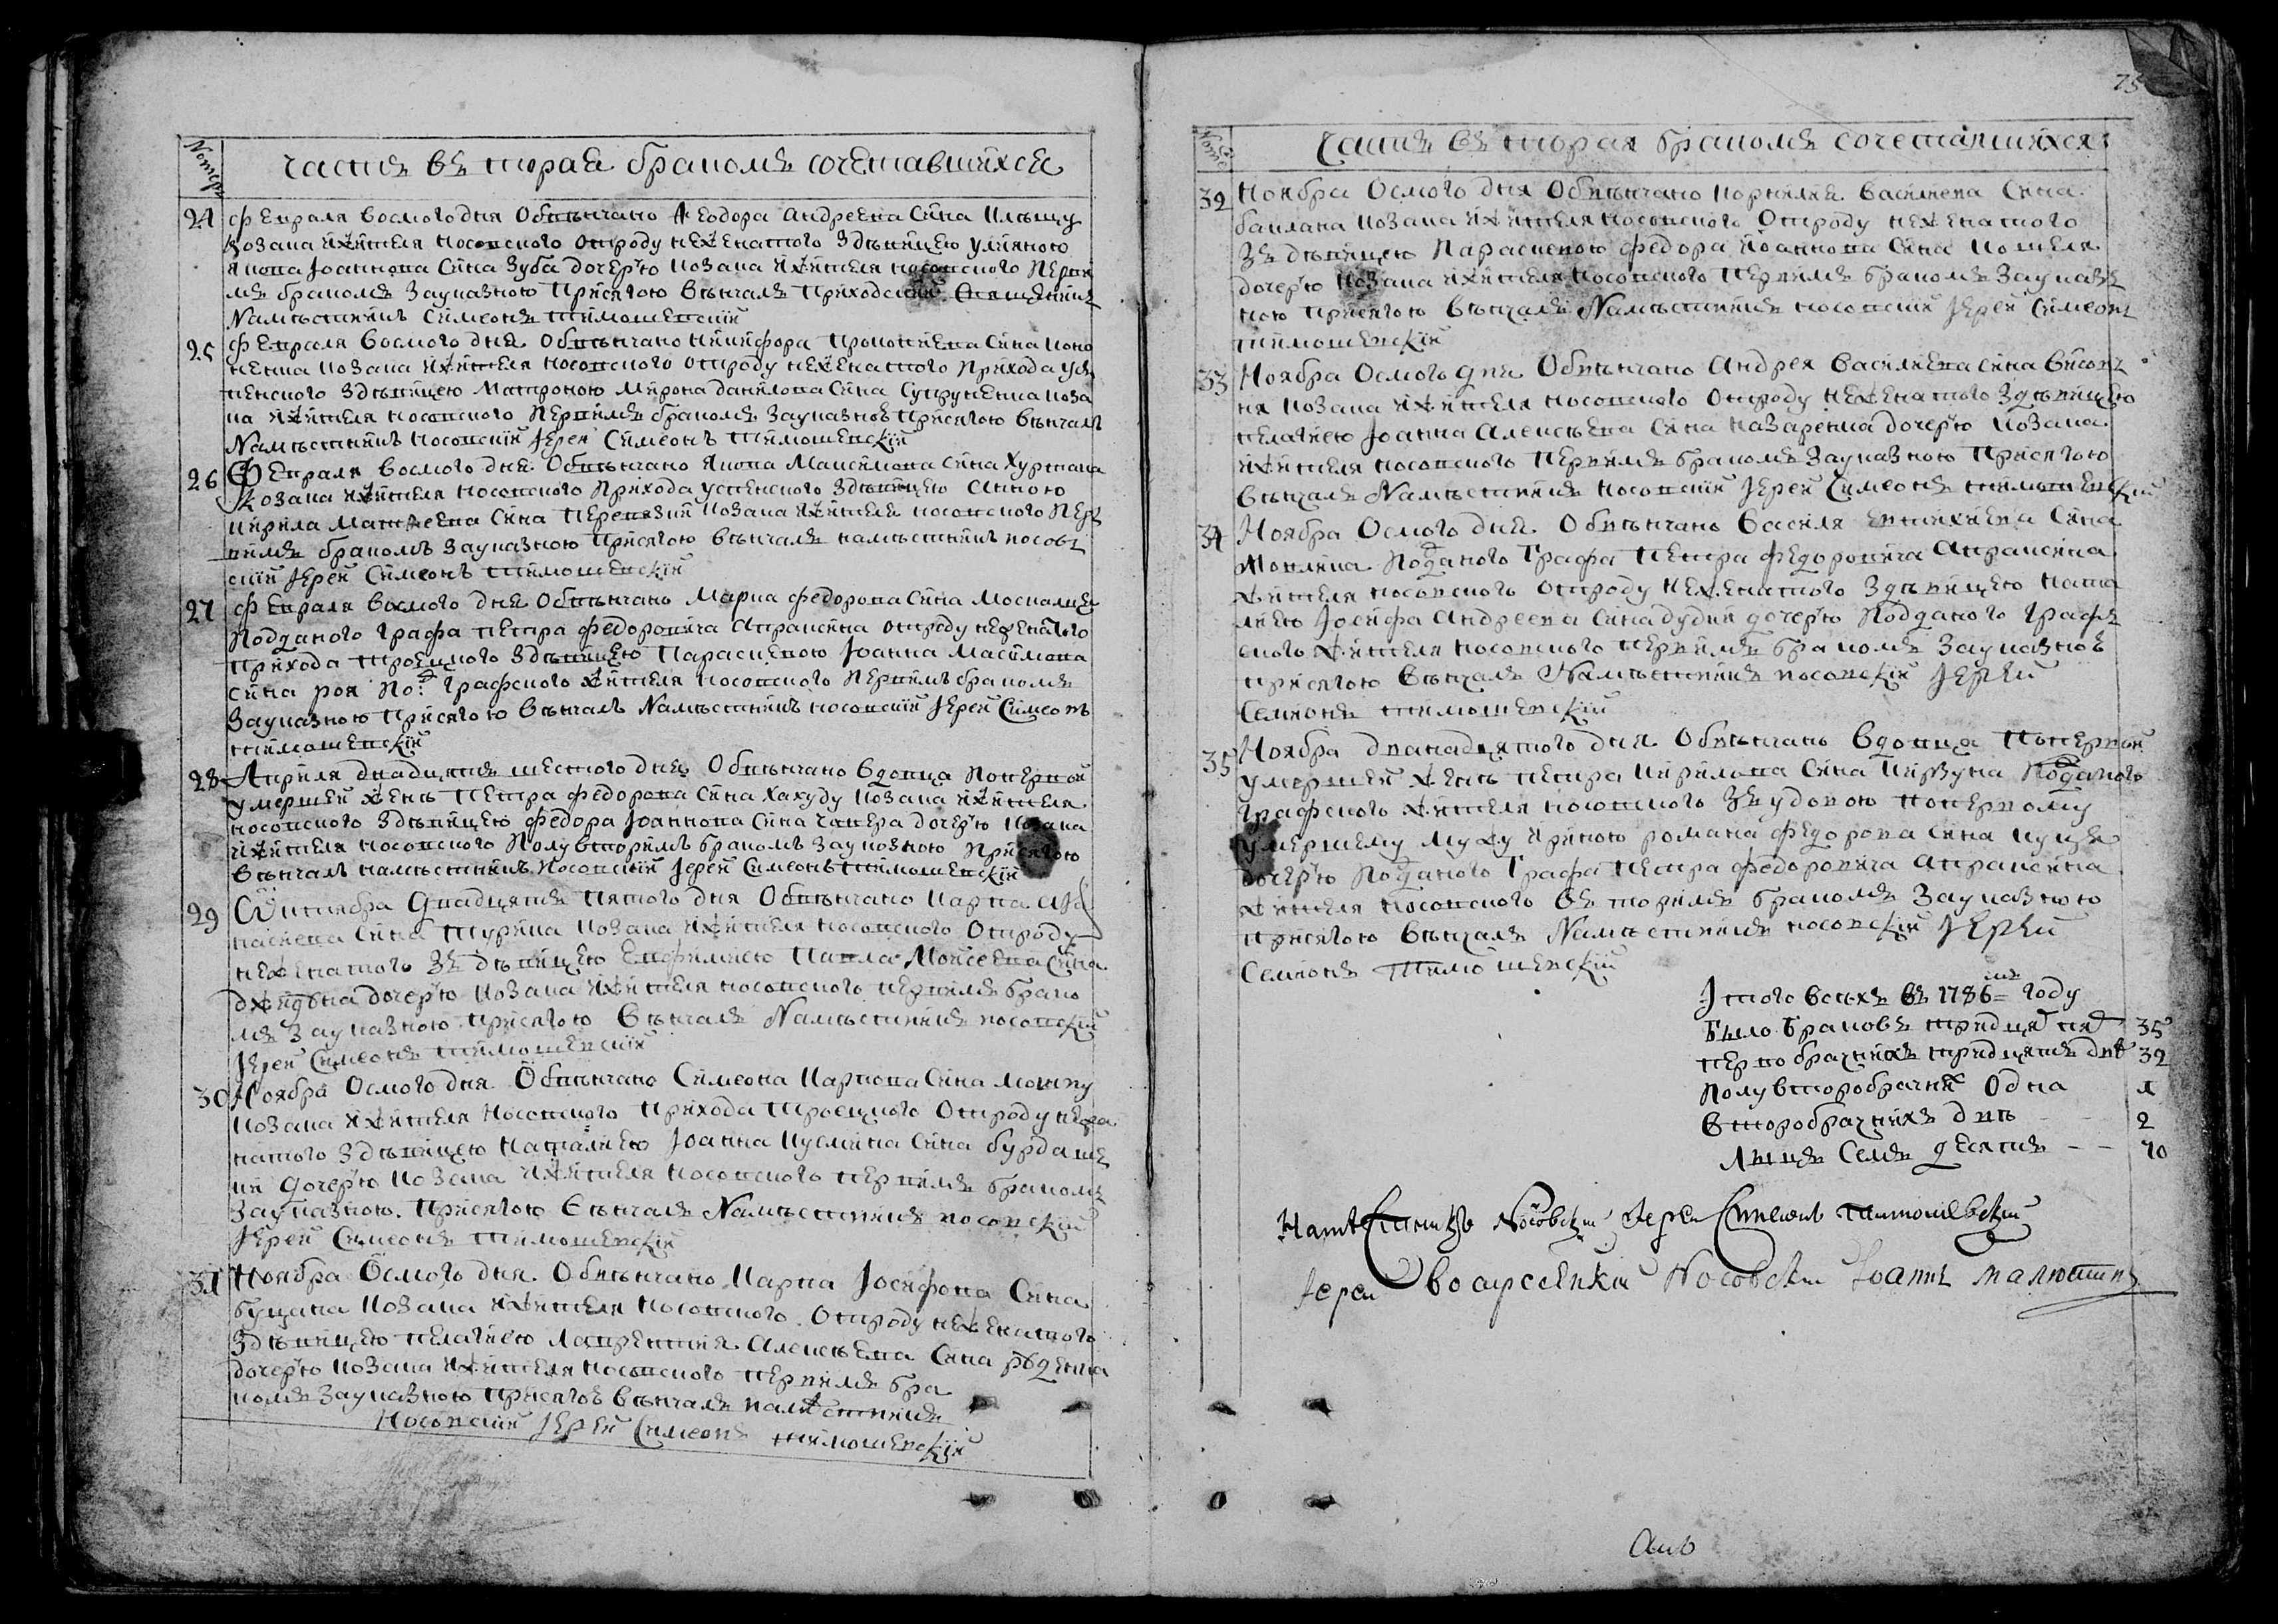 Номеръ
Часть въторая бракомъ сочетавшихся
24
Февраля восмого дня Обвѣнчано Ѳеодора Андреева Сина
козака и жителя носовского отроду неженатого здѣвицею Улияною
Якова Іоаннова Сина Зуба дочерю козака и жителя носовского Перви
мъ бракомъ Зауказною Присягою вѣнчалъ Приходский Священикъ
Намѣстникъ Симеонъ Тимошевский
25
Февраля восмого дня Обвѣнчано Никифора Прокопиева Сина Коно
козака и жителя носовского отроду неженатого Прихода Ус
пенского Здѣвицею Матроною Мирона Данилова Сина Супруненка коза
ка и жителя носовского Первимъ бракомъ Зауказное Присягою вѣнчалъ
Намѣстникъ Носовский Іерей Симеонъ Тимошевский
26
Февраля восмого дня Обвѣнчано Якова Максимова Сина
Козака и жителя носовского Прихода успенского Здѣвицею Анною
Кирила Матѳеева Сина козака и жителя носовского Пер
вимъ бракомъ Зауказною Присягою вѣнчалъ намѣстникъ носов
ский Іерей Симеонъ Тимошевский
27
Февраля восмого дня Обвѣнчано Марка Федорова Сина Москалца
Подданого Графа Петра Федоровича Апраксина отроду неженатого
Прихода Троецкого Здѣвицею Параскевою Іоанна Масимова
Сина Роя По:д Графского жителя носовского Первимъ бракомъ
Зауказною Присягою вѣнчалъ Намѣстникъ носовский Іерей Симеонъ
Тимошевский
28
Априля двадцять шестого дня Обвѣнчано вдовца Поперной
умершей женѣ Петра Федорова Сина Хакуду козака и жителя
носовского Здѣвицею Федора Іоаннова Сина дочерю козака
и жителя носовского Полувторимъ бракомъ Зауказною Присягою
вѣнчалъ намѣстникъ Носовский Іерей Симеонъ Тимошевский
29
двадцять пятого дня Обвѣнчано Карпа Афа
насиева Сина Турика козака и жителя носовского Отроду
неженатого Зъ дѣвицею Евфимиею Павла Моисеева Сина
дочерю козака и жителя носовского первимъ брако
мъ Зауказною присягою вѣнчалъ Намѣстникъ носовский
Іерей Симеонъ Тимошевский
30
Ноября Осмого дня Обвѣнчано Симеона Карпова Сина
козака и жителя носовского Прихода Троецкого Отроду неже
натого Здѣвицею Наталиею Іоанна Кусмина Сина
дочерю козака и жителя носовского первимъ бракомъ
Зауказною Присягою вѣнчалъ Намѣстникъ носовский
Іерей Симеонъ Тимошевский
31
Ноября Осмого дня Обвѣнчано Карпа Іосифова Сина
Буцика козака и жителя носовского Отроду неженатого
Здѣвицею пелагиею Лаврентия Алексѣева Сина
дочерю козака и жителя носовского первимъ бра
комъ Зауказною присягое вѣнчалъ намѣстникъ
Носовский Іерей Симеонъ Тимошевский
75
Часть въторая бракомъ сочетавшихся:
32
Ноября Осмого дня Обвѣнчано Корнилия Василиева Сина
Баклана козака и жителя носовского Отроду неженатого
Зъ дѣвицею Параскевою Федора Иоаннова Сина Кошеля
дочерю козака и жителя носовского Первимъ бракомъ Зауказ
ною присягою вѣнчалъ Намѣстникъ носовский Іерей Симеонъ
Тимошевский
33
Ноября Осмого дня Обвѣнчано Андрея Василиева Сина
козака и жителя носовского Отроду неженатого Здѣвицею
пелагиею Іоанна Алексѣева Сина Назаренка дочерю козака
и жителя носовского Первимъ бракомъ Зауказною Присягою
вѣнчалъ Намѣстникъ носовский Іерей Симеонъ Тимошевский
34
Ноября Осмого дня Обвѣнчано Василя Евтихиева Сина
Подданого Графа Петра Федоровича Апраксина
жителя носовского отроду неженатого Здѣвицею Ната
лиею Іосифа Андреева Сина Дудки дочерю Подданого Граф
ского жителя носовского первимъ бракомъ Зауказное
присягою вѣнчалъ Намѣстникъ носовский Іерей
Семионъ Тимошевский
35
Ноября двападцятого дня Обвѣнчано вдовца Поперной
умершей женѣ Петра Кирилова Сина Подданого
Графского жителя носовского Зъ удовою поперному
умершему мужу Ириною Романа Федорова Сина Куцея
дочерю Подданого Графа Петра Федоровича Апраксина
жителя носовского въторимъ бракомъ Зауказною
присягою вѣнчалъ Намѣстникъ носовский Іерей
Семионъ Тимошевский
Итого всѣхъ въ 1786мъ Году
Было браковъ тридцят пят 35
первобрачнихъ тридцять двѣ 32
Полувторобрачний Одна 1
второбрачнихъ двѣ - - 2
Лицъ Семъ десятъ - - 70
Намѣстникъ Носовский Іерей Симеонъ Тимошевский
Іерей воскресенкий Носовский Іоаннъ Малютинъ